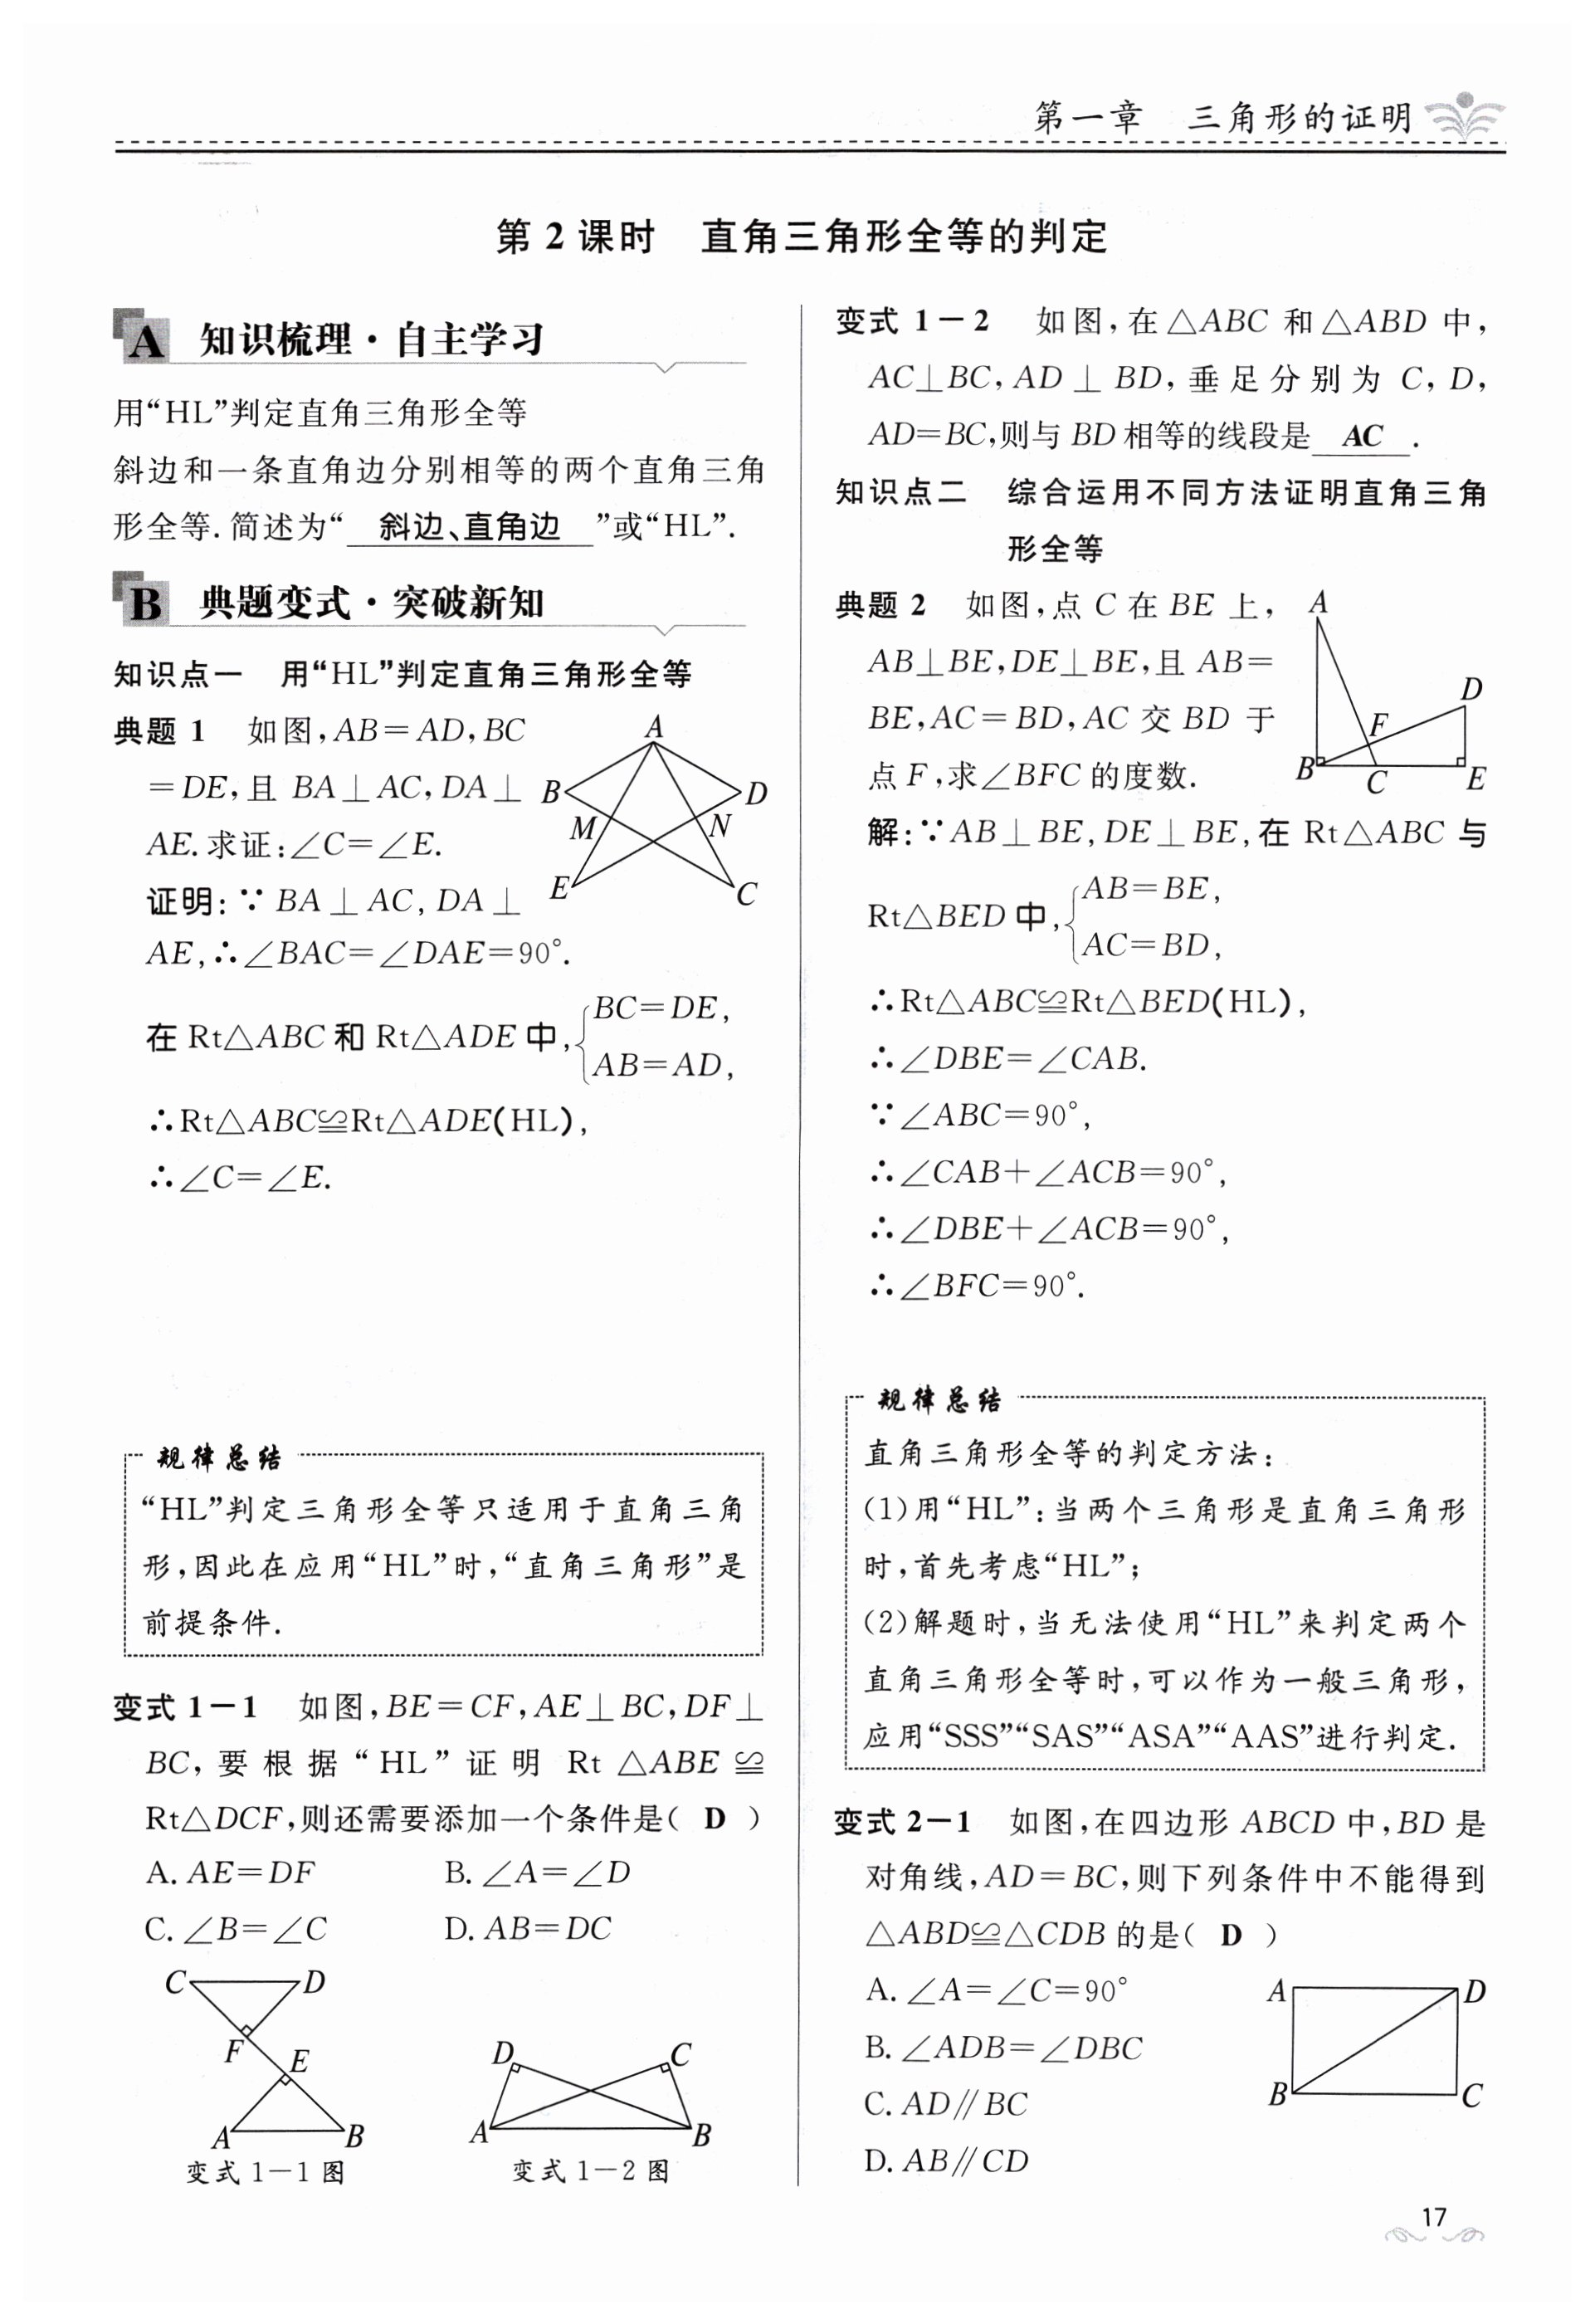 第一章 三角形的证明
第 2 课时 直角三角形全等的判定
A 知识梳理·自主学习
用“HL”判定直角三角形全等
斜边和一条直角边分别相等的两个直角三角
形全等. 简述为“ 斜边、直角边 ”或“HL”.
B 典题变式·突破新知
知识点一 用“HL”判定直角三角形全等
典题 1 如图,AB=AD,BC
=DE,且 BA⊥AC,DA⊥
AE. 求证:∠C=∠E.
A
B
D
M
N
E
C
证明:∵BA⊥AC,DA⊥
AE,∴∠BAC=∠DAE=90°.
在 Rt△ABC 和 Rt△ADE 中,{BC=DE,
AB=AD,
∴Rt△ABC≌Rt△ADE(HL),
∴∠C=∠E.
规律总结
“HL”判定三角形全等只适用于直角三角
形,因此在应用“HL”时,“直角三角形”是
前提条件.
变式 1－1 如图,BE=CF,AE⊥BC,DF⊥
BC,要根据“HL”证明 Rt△ABE≌
Rt△DCF,则还需要添加一个条件是( D )
A. AE=DF B. ∠A=∠D
C. ∠B=∠C D. AB=DC
C
D
F
E
A
B
变式 1－1 图
D
C
A
B
变式 1－2 图
变式 1－2 如图,在△ABC 和△ABD 中,
AC⊥BC,AD⊥BD,垂足分别为 C,D,
AD=BC,则与 BD 相等的线段是 AC .
知识点二 综合运用不同方法证明直角三角
形全等
典题 2 如图,点 C 在 BE 上,
AB⊥BE,DE⊥BE,且 AB=
BE,AC=BD,AC 交 BD 于
点 F,求∠BFC 的度数.
A
D
F
B
C
E
解:∵AB⊥BE,DE⊥BE,在 Rt△ABC 与
Rt△BED 中,{AB=BE,
AC=BD,
∴Rt△ABC≌Rt△BED(HL),
∴∠DBE=∠CAB.
∵∠ABC=90°,
∴∠CAB+∠ACB=90°,
∴∠DBE+∠ACB=90°,
∴∠BFC=90°.
规律总结
直角三角形全等的判定方法:
(1)用“HL”:当两个三角形是直角三角形
时,首先考虑“HL”;
(2)解题时,当无法使用“HL”来判定两个
直角三角形全等时,可以作为一般三角形,
应用“SSS”“SAS”“ASA”“AAS”进行判定.
变式 2－1 如图,在四边形 ABCD 中,BD 是
对角线,AD=BC,则下列条件中不能得到
△ABD≌△CDB 的是( D )
A. ∠A=∠C=90°
B. ∠ADB=∠DBC
C. AD∥BC
D. AB∥CD
A
D
B
C
17